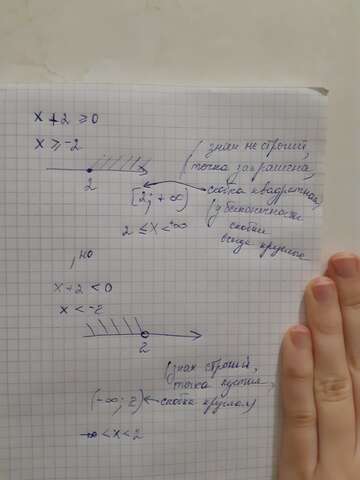 x + 2 ≥ 0
x ≥ -2
(знак не строгий,
точка закрашена,
2
[2; +∞)
скобка квадратная,
(у бесконечности
скобки
всегда круглые
2 ≤ x < +∞
, но
x + 2 < 0
x < -2
2
(знак строгий,
точка пустая,
(-∞; 2)
скобка круглая)
-∞ < x < 2